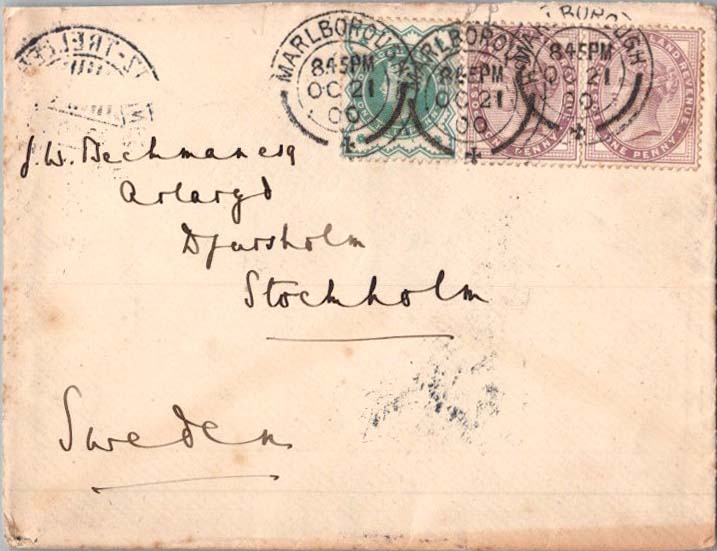 MARLBOROUGH
845PM
OC 21
00
MARLBOROUGH
845PM
OC 21
00
MARLBOROUGH
845PM
OC 21
00
INLAND REVENUE
ONE PENNY
J. W. Bechman esq
Arlargd
Djursholm
Stockholm
Sweden